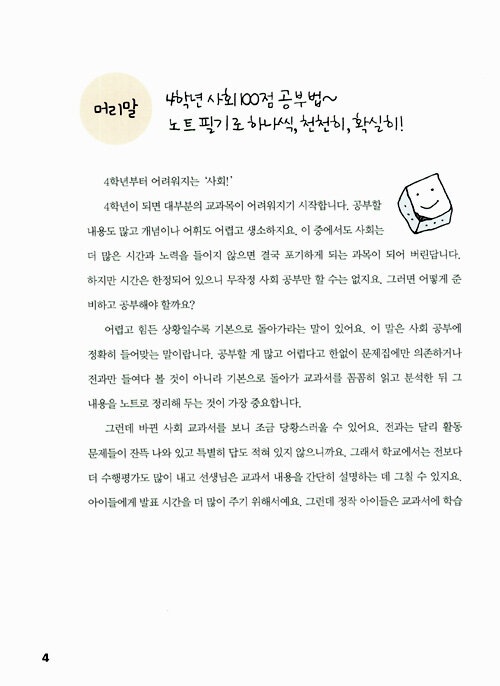 머리말
4학년 사회 100점 공부법~
노트 필기로 하나씩, 천천히, 확실히!
4학년부터 어려워지는 ‘사회!’
4학년이 되면 대부분의 교과목이 어려워지기 시작합니다. 공부할
내용도 많고 개념이나 어휘도 어렵고 생소하지요. 이 중에서도 사회는
더 많은 시간과 노력을 들이지 않으면 결국 포기하게 되는 과목이 되어 버린답니다.
하지만 시간은 한정되어 있으니 무작정 사회 공부만 할 수는 없지요. 그러면 어떻게 준
비하고 공부해야 할까요?
어렵고 힘든 상황일수록 기본으로 돌아가라는 말이 있어요. 이 말은 사회 공부에
정확히 들어맞는 말이랍니다. 공부할 게 많고 어렵다고 한없이 문제집에만 의존하거나
전과만 들여다 볼 것이 아니라 기본으로 돌아가 교과서를 꼼꼼히 읽고 분석한 뒤 그
내용을 노트로 정리해 두는 것이 가장 중요합니다.
그런데 바뀐 사회 교과서를 보니 조금 당황스러울 수 있어요. 전과는 달리 활동
문제들이 잔뜩 나와 있고 특별히 답도 적혀 있지 않으니까요. 그래서 학교에서는 전보다
더 수행평가도 많이 내고 선생님은 교과서 내용을 간단히 설명하는 데 그칠 수 있지요.
아이들에게 발표 시간을 더 많이 주기 위해서예요. 그런데 정작 아이들은 교과서에 학습
4